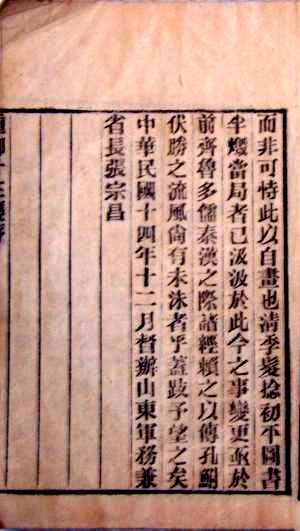 而非可恃此以自畫也清季髮捻初平圖書
半燬當局者已汲汲於此今之事變更亟於
前齊魯多儒秦漢之際諸經賴之以傳孔鮒
伏勝之流風尙有未沬者乎蓋跂予望之矣
中華民國十四年十二月督辦山東軍務兼
省長張宗昌